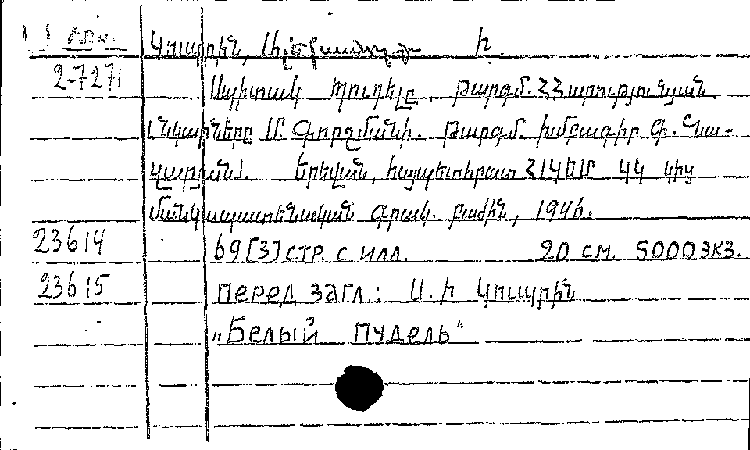 Կուպրին, Ալեքսանդր Ի.
2-7271 Սպիտակ պուդելը. թարգմ. Հ Հարությունյան.
Նկարները Մ. Գորշմանի. թարգմ. խմբագիր Գ. Հա-
Երևան, հայպետհրատ ՀԼԿԵՄ ԿԿ կից
մանկապատանեկան գրակ. բաժին, 1946.
23614 69[3] стр. с илл. 20 см. 5000 экз.
23615 перед загл: Ա. Ի Կուպրին
„Белый пудель"